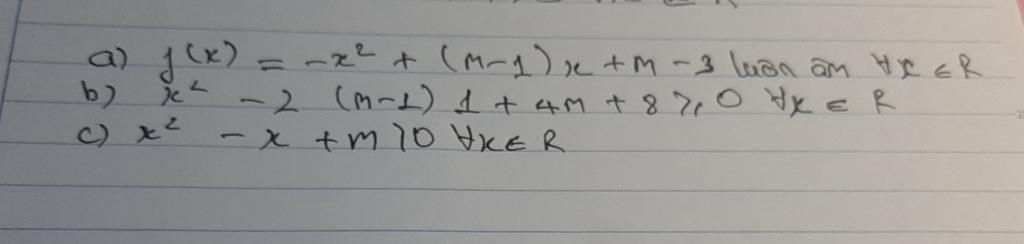 a) f(x) = -x² + (m-1)x + m - 3 luôn âm ∀x ∈ R
b) x² - 2 (m-1) 1 + 4m + 8 ≥ 0 ∀x ∈ R
c) x² - x + m > 0 ∀x ∈ R